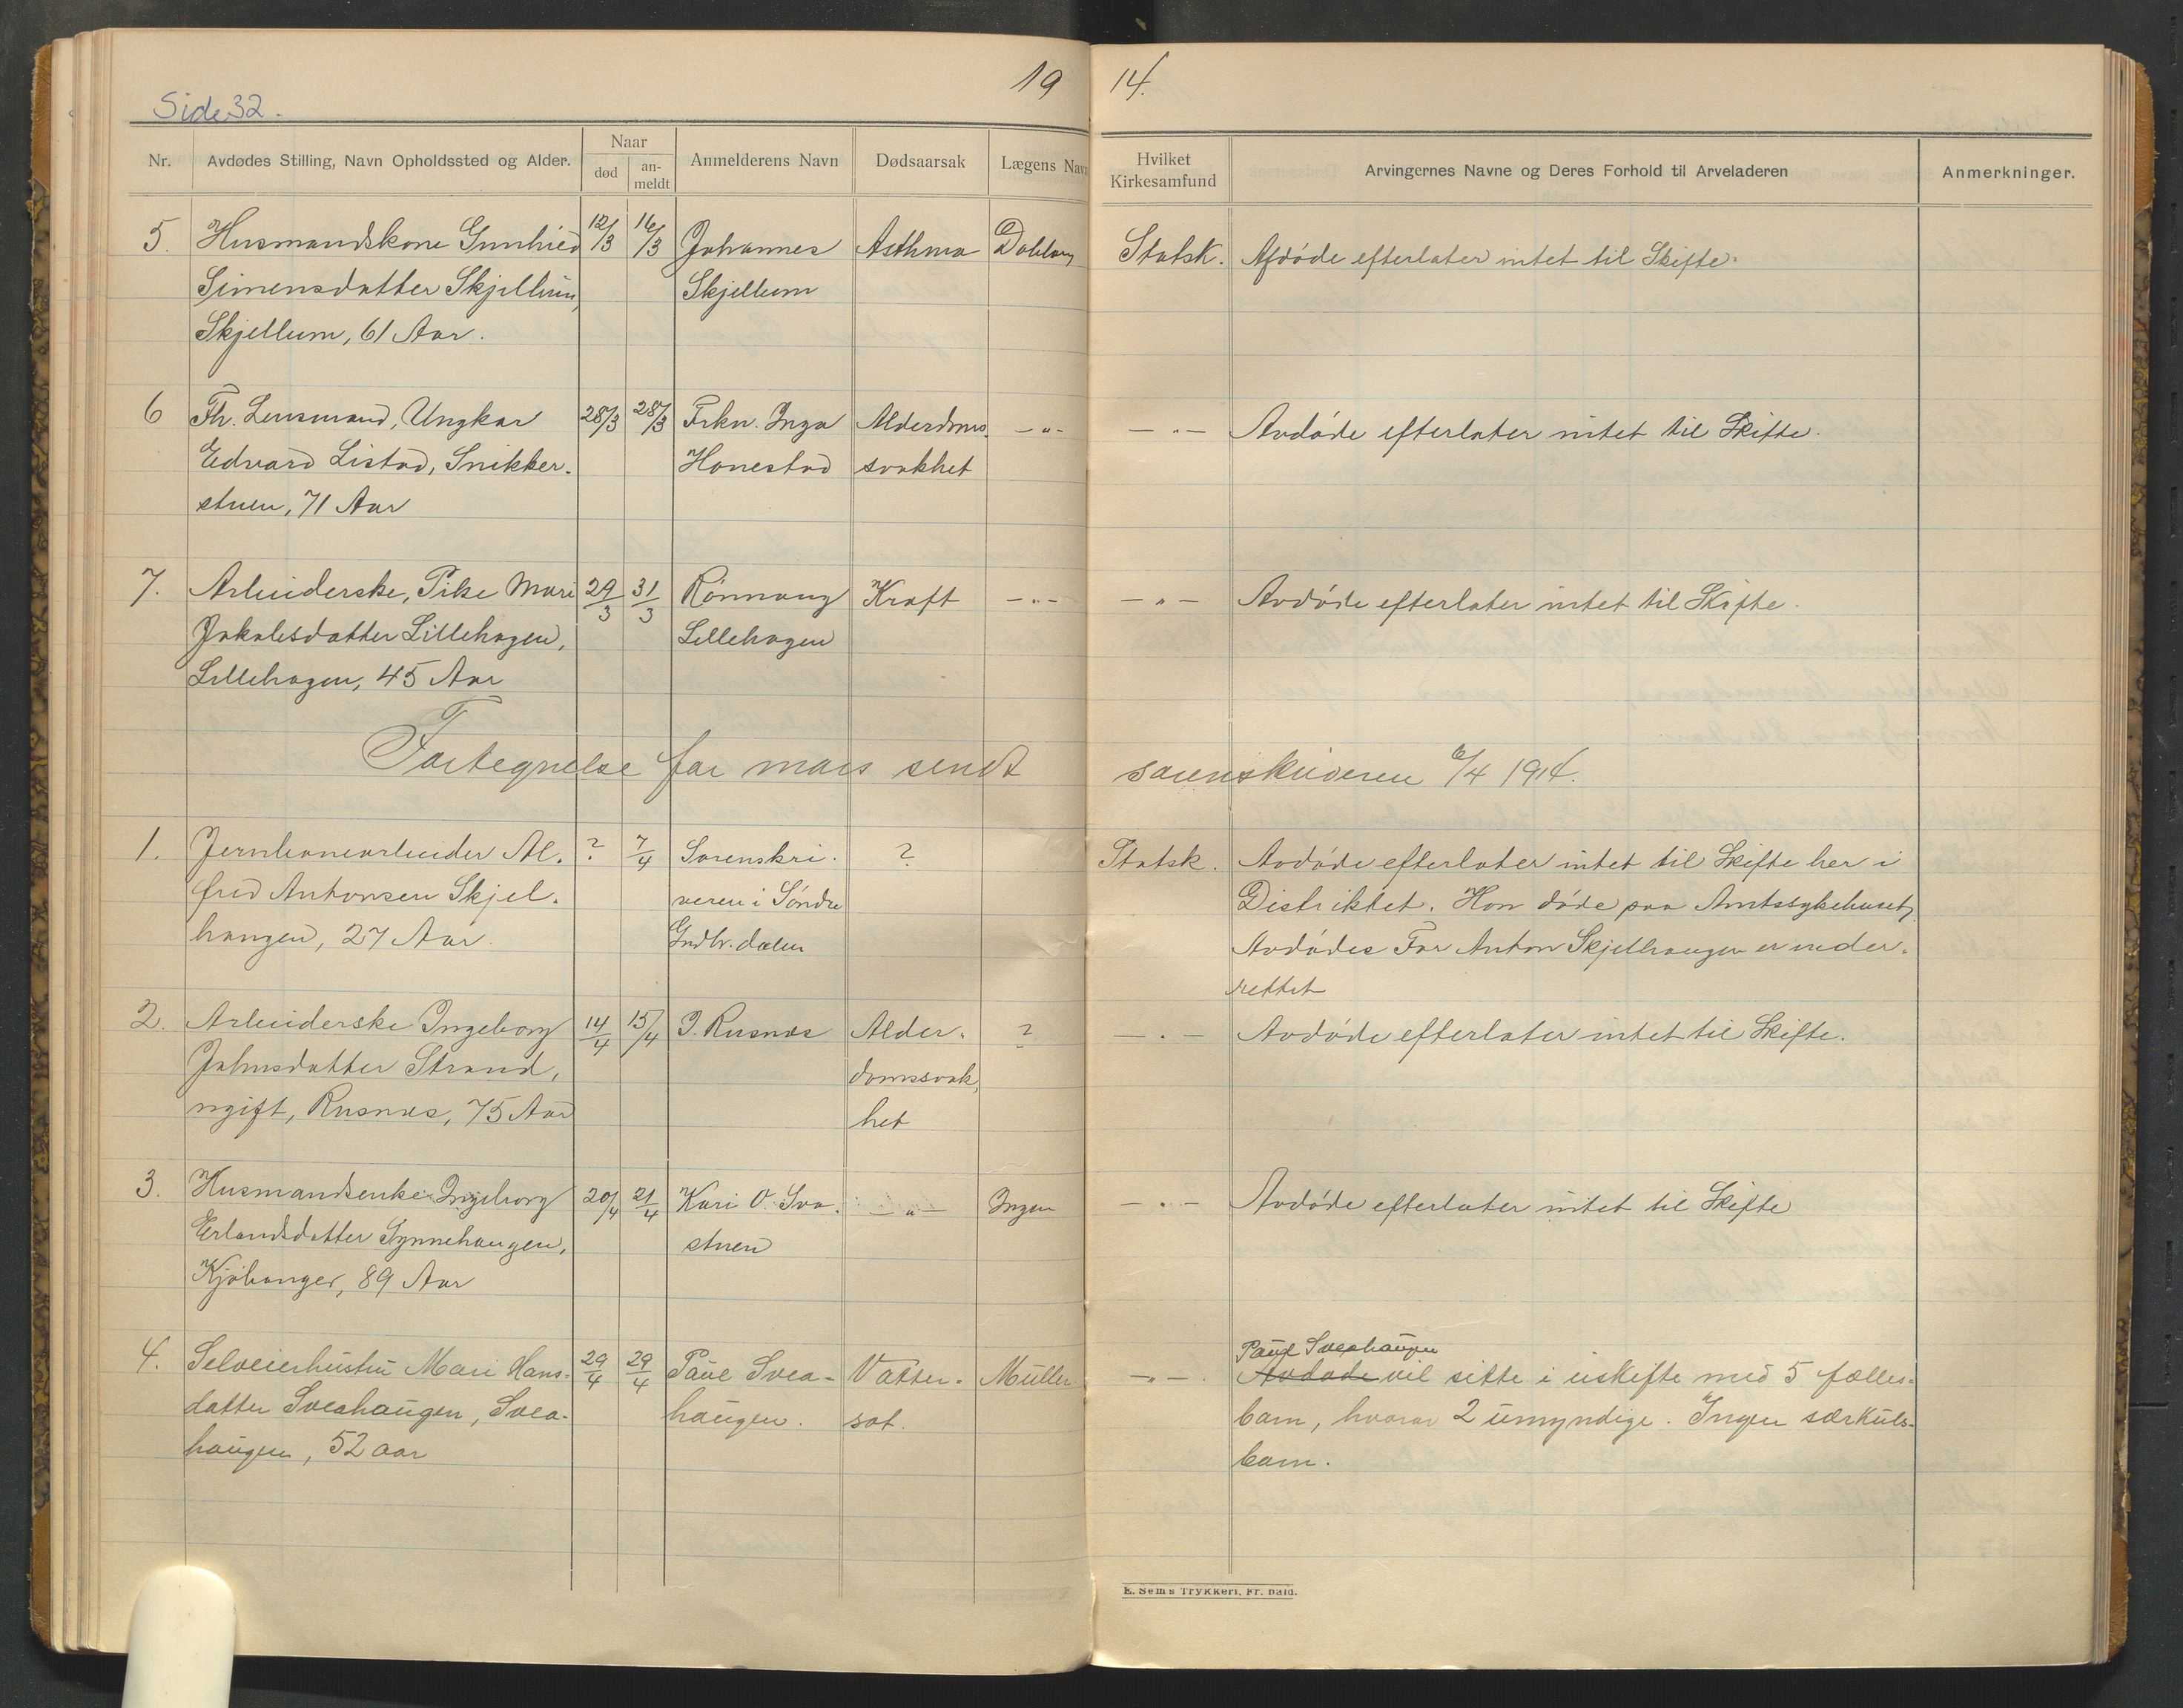 Side 32.
19 14.
Nr.
Avdødes Stilling, Navn Opholdssted og Alder.
Naar
død
an-
meldt
Anmelderens Navn
Dødsaarsak
Lægens Navn
Hvilket
Kirkesamfund
Arvingernes Navne og Deres Forhold til Arveladeren
Anmerkninger.
5. Husmandskone Gunhild 12/3 16/3 Johannes Asthma Statsk. Afdøde efterlater intet til Skifte.
Simensdatter Skjellum, Skjellum
Skjellum, 61 Aar.
6 Fh. Lensmand, Ungkar 28/3 28/3 Frkn. Inga Alderdoms- -"- -"- Avdøde efterlater intet til Skifte.
Edvard Listad, Snikker- Honestad svakhet
stuen, 71 Aar
7. Arbeiderske, Pike Mari 29/3 31/3 Rønnaug Kræft -"- -"- Avdøde efterlater intet til Skifte.
Jakobsdatter Lillehagen, Lillehagen
Lillehagen, 45 Aar
Fortegnelse for mars sendt sorenskriveren 6/4 1914.
1. Jernbanearbeider Al- ? 7/4 Sorenskri- ? Statsk. Avdøde efterlater intet til Skifte her i
fred Antonsen Skjel- veren i Søndre Distriktet. Han døde paa Amtssykehuset,
haugen, 27 Aar. Gudbr. dalen Avdødes Far Anton Skjelhaugen er under-
rettet
2. Arbeiderske Ingeborg 14/4 15/4 J. Rusnes Alder- ? -"- Avdøde efterlater intet til Skifte.
Johnsdatter Strand, domssvak-
ugift, Rusnes, 75 Aar het
3. Husmandsenke Ingeborg 20/4 21/4 Kari O. Sva- -"- Ingen -"- Avdøde efterlater intet til Skifte
Erlandsdatter Synnehaugen, stuen
89 Aar
Paul Sveahaugen
4. Selveierhustru Mari Hans- 29/4 29/4 Paul Svea- Vatter- Müller -"- Avdøde vil sitte i uskifte med 5 fælles-
datter Sveahaugen, Svea- haugen. sot. barn, hvorav 2 umyndige. Ingen særkuls-
haugen, 52 aar barn.
E. Sems Trykkeri, Fr. hald.